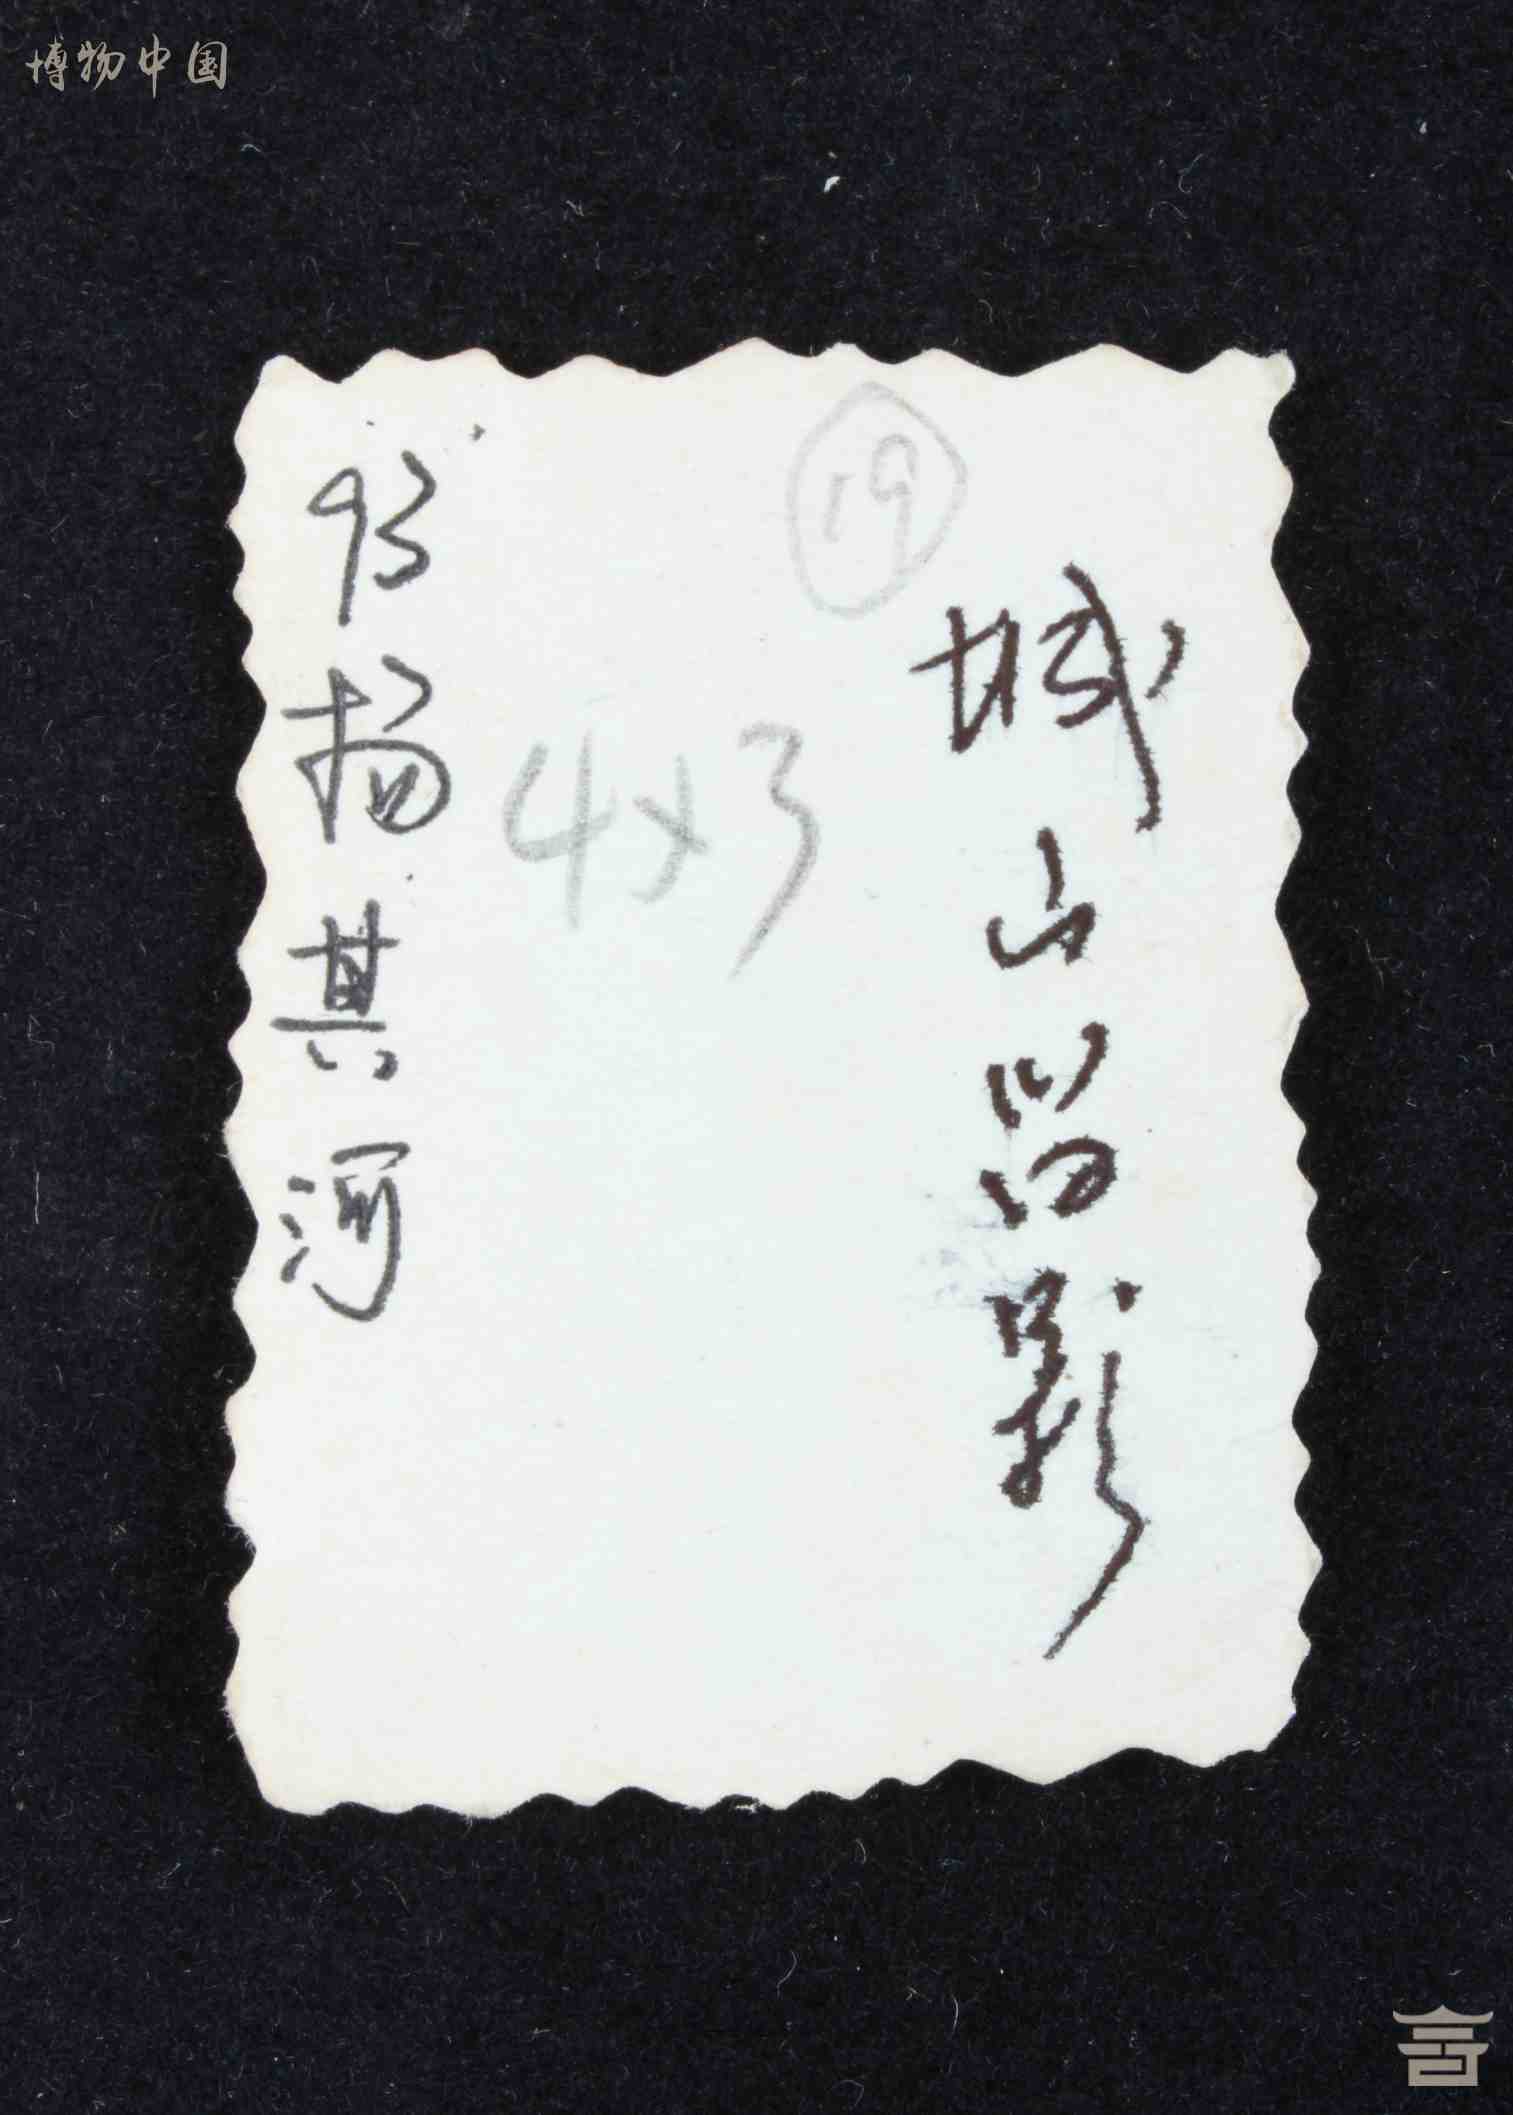 博物中国
19
城山留影
4x3
93
杨其河